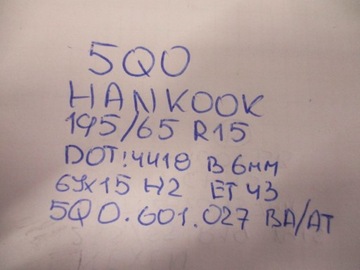 5Q0
HANKOOK
195/65 R15
DOT:4418 B6MM
6Jx15 H2 ET 43
5Q0.601.027 BA/AT